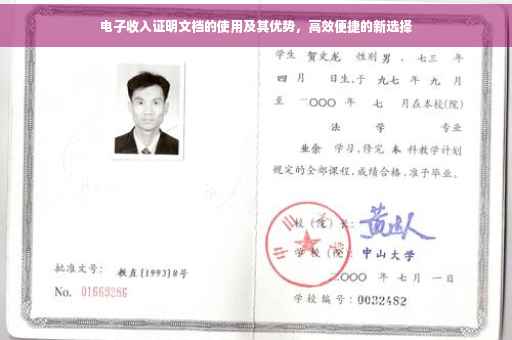 电子收入证明文档的使用及其优势，高效便捷的新选择
学生 贺文龙 性别 男 、七三 年
四 月 日生、于 九七 年 九 月
至 二〇〇〇 年 七 月在本校(院)
法 学 专业
业余 学习，修完 本 科教学计划
规定的全部课程，成绩合格，准予毕业。
校（院）长：
学校（院）： 中山大学
二〇〇〇 年 七 月 一 日
批准文号： 教直[1993]8号
No. 01669286
学校编号：0032482